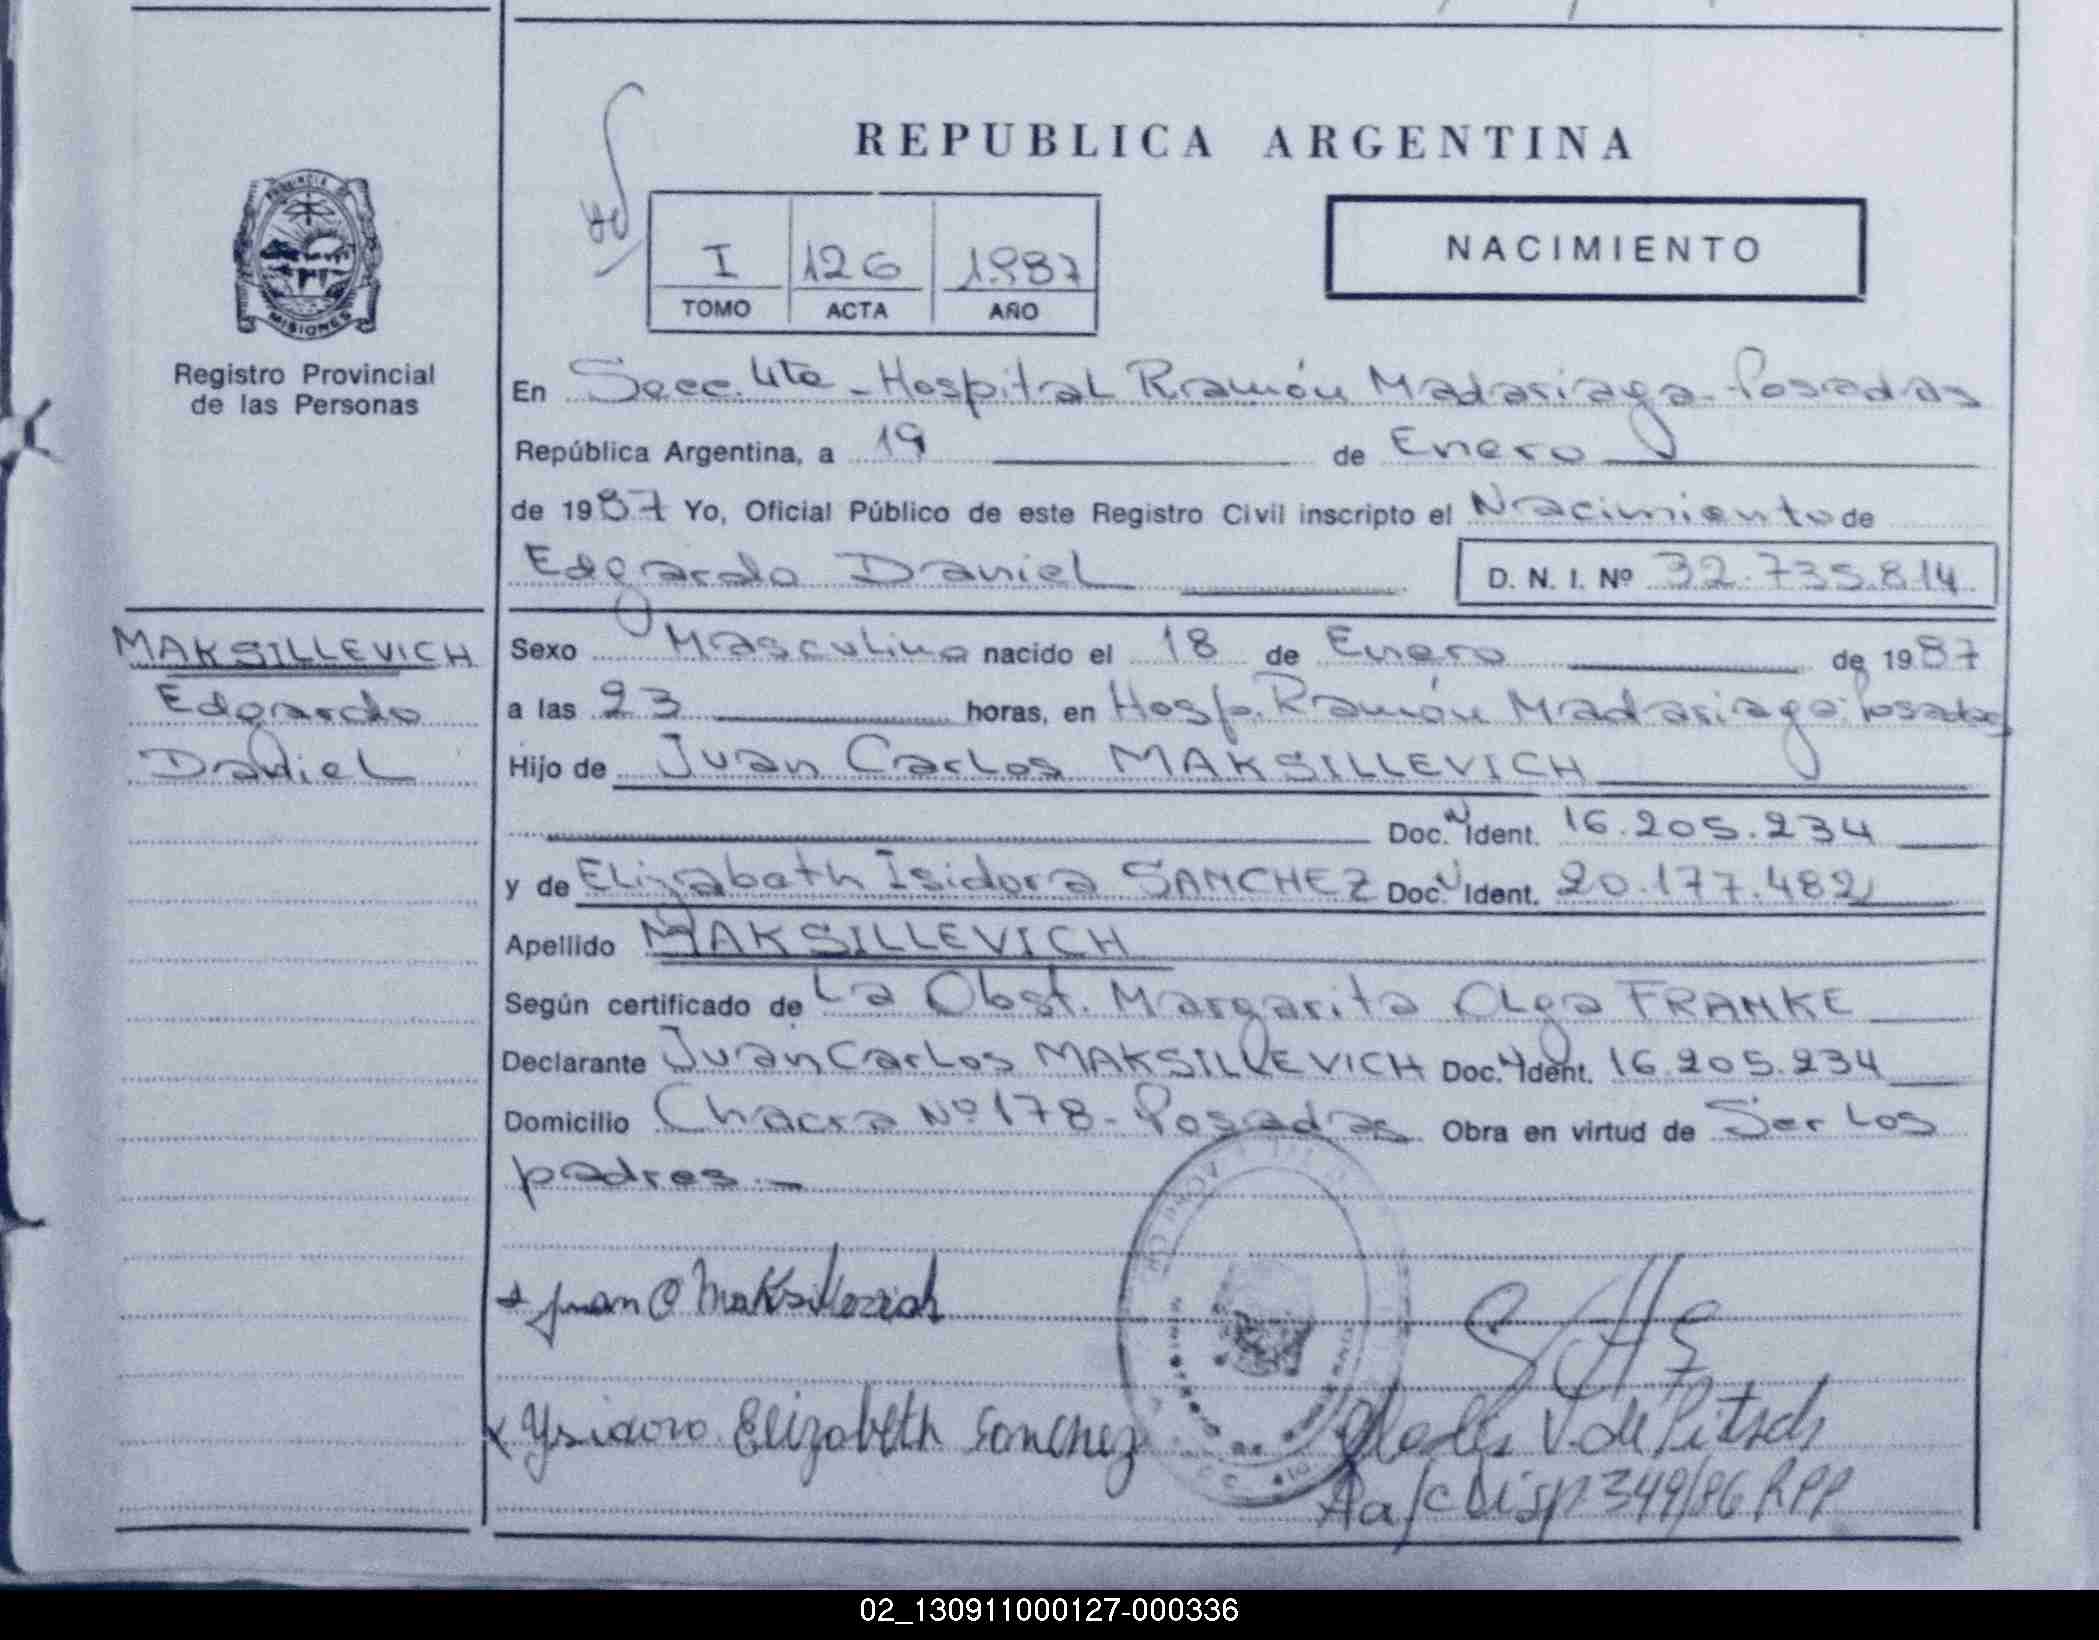 REPUBLICA ARGENTINA
NACIMIENTO
I 126 1987
TOMO ACTA AÑO
PROVINCIA DE
MISIONES
Registro Provincial
de las Personas
En Secc. 4ta - Hospital Ramón Madariaga - Posadas
República Argentina, a 19 de Enero
de 1987 Yo, Oficial Público de este Registro Civil inscripto el Nacimiento de
Edgardo Daniel D. N. I. Nº 32.735.814
MAKSILLEVICH
Edgardo
Daniel
Sexo Masculino nacido el 18 de Enero de 1987
a las 23 horas, en Hosp. Ramón Madariaga - Posadas
Hijo de Juan Carlos MAKSILLEVICH
Doc. Ident. 16.205.234
y de Elizabeth Isidora SANCHEZ Doc. Ident. 20.177.482
Apellido MAKSILLEVICH
Según certificado de La Obst. Margarita Olga FRANKE
Declarante Juan Carlos MAKSILLEVICH Doc. Ident. 16.205.234
Domicilio Chacra Nº 178 - Posadas Obra en virtud de Ser los
padres.-
Juan C Maksillevich
Ysidora Elizabeth Sanchez
V. de Pitsch
Aa/c Disp 349/86 RPP
02_130911000127-000336